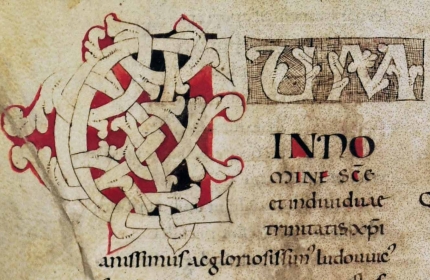 CUM
IN NO
MINE SCE
et indiuiduae
trinitatis xpi
anissimus ac gloriosissim' ludouuic'